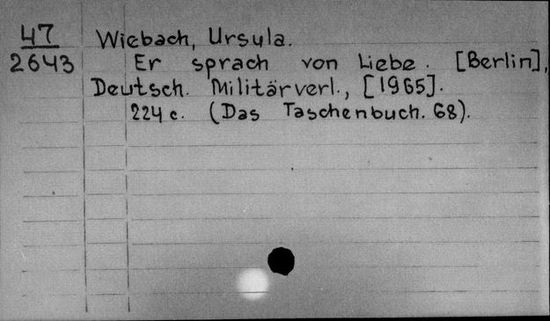 47
2643
Wiebach, Ursula.
Er sprach von Liebe. [Berlin],
Deutsch. Militärverl., [1965].
224 c. (Das Taschenbuch. 68).